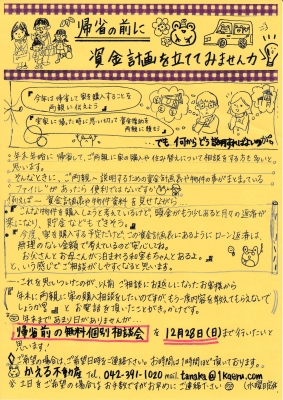 帰省の前に
資金計画を立ててみませんか
今年は帰省して家を購入することを
両親に伝えよう
実家に帰った時に思い切って資金援助を
両親に頼もう
…でも何からどう説明すればいいのか。
年末年始に帰省して、ご両親に家の購入や住み替えについて相談をする方も多いと
思います。
そんなときに、ご両親へ説明するための資金計画表や物件の事がまとまっている
ファイルがあったら便利ではないですか
例えば… 資金計画表や物件資料を見せながら
こんな物件を購入しようと考えているけど、頭金がもう少しあると月々の返済が
楽になり、貯金などもできそう。
今度、家を購入する予定だけど、この資金計画表にあるようにローン返済は、
無理のない金額で考えているので安心してね。
お父さんとお母さんが泊まれる和室もちゃんとあるよ。
という感じでご相談がしやすくなると思います。
これを思いついたのが、以前ご相談にお越しになったお客様から
年末に両親に家の購入相談をしたいのですが、もう一度内容を教えてもらえないで
しょうか
とお電話を頂いたことがきっかけです。
年末まであまり日がありませんが…
帰省前の無料個別相談会 を 12月28日(日)まで行いたいと
思います!
ご希望の場合は、ご希望日時をご連絡下さい。お時間は1時間ほど頂いております。
かえる不動産 Tel. 042-391-1020 mail. tanaka@1kaeru.com
土日をご希望の場合はお手数ですがお早めにご連絡下さい (水曜定休)